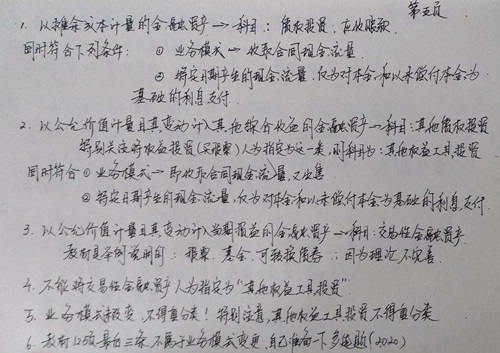 第五页
1. 以摊余成本计量的金融资产 → 科目：债权投资，应收账款
同时符合下列条件：① 业务模式 — 收取合同现金流量
② 特定日期产生的现金流量，仅为对本金和以未偿付本金为
基础的利息支付.
2. 以公允价值计量且其变动计入其他综合收益的金融资产 → 科目：其他债权投资
特别关注将权益投资(买股票)人为指定为这一类，则科目为：其他权益工具投资
同时符合 ① 业务模式 — 即收取合同现金流量，又出售
② 特定日期产生的现金流量，仅为对本金和以未偿付本金为基础的利息支付.
3. 以公允价值计量且其变动计入当期损益的金融资产 → 科目：交易性金融资产
教材具举例说明的：股票、基金、可转换债券：因为理论不完善.
4. 不能将交易性金融资产人为指定为"其他权益工具投资"
5. 业务模式改变，不得重分类！特别注意，其他权益工具投资不得重分类
6. 教材12页最后三条不属于业务模式变更，自己准备一下多选题(2020)